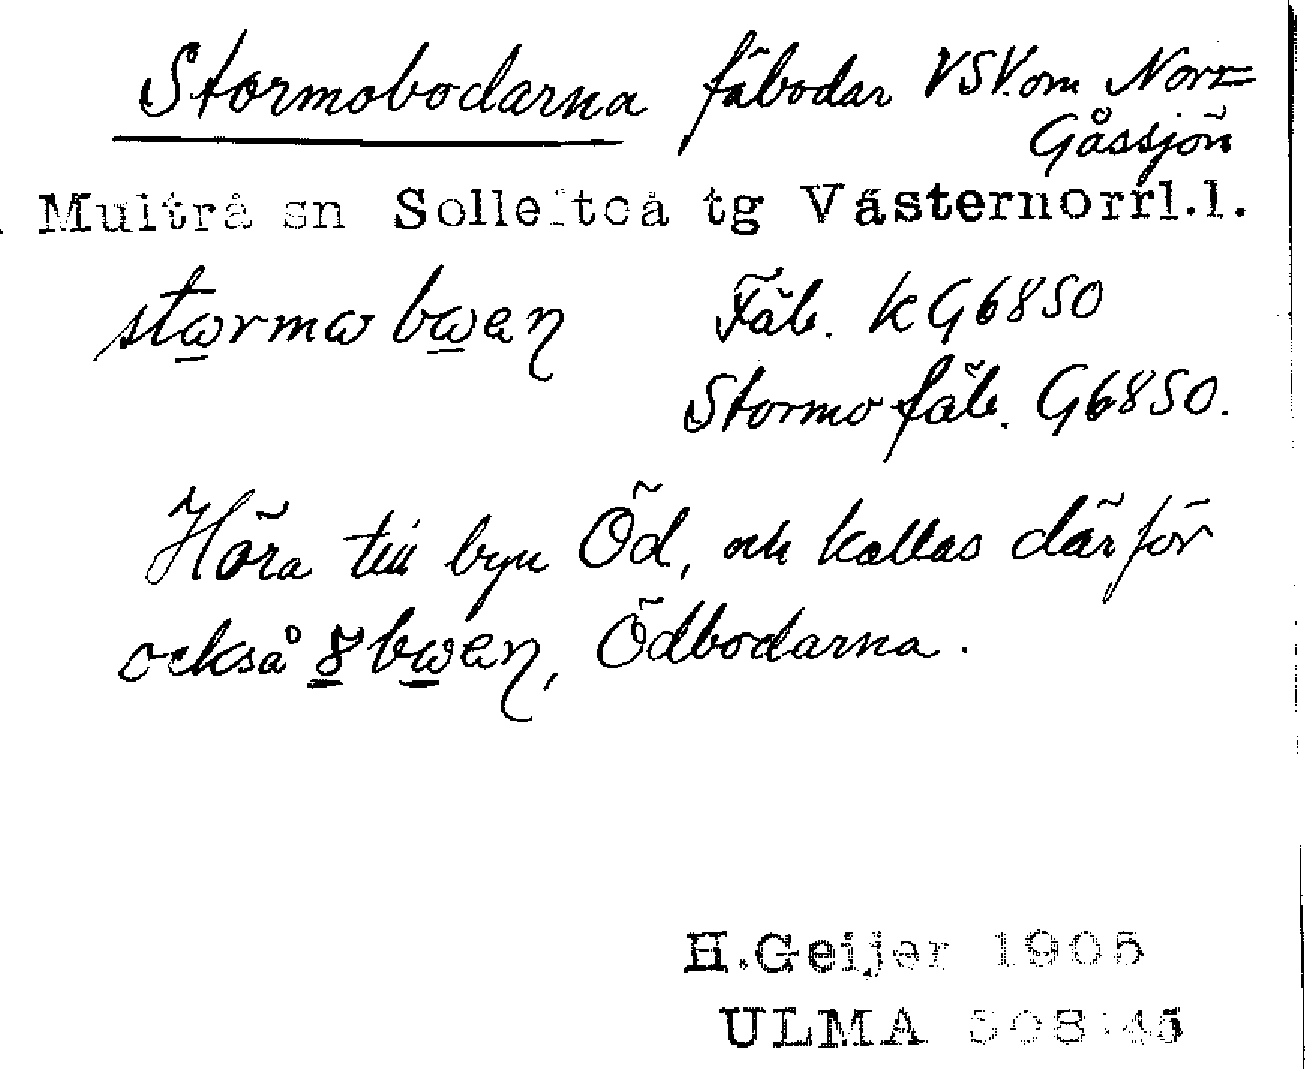 Stormobodarna fäbodar VSV. om Norr=
Gåssjön
Multrå sn Sollefteå tg Västernorrl.l.
stωrmω bωen Fäb. KG6850
Stormo fäb. G6850.
Höra till byn Öd, och kallas därför
också bωen, Ödbodarna.
H.Geijer 1905
ULMA 508:45